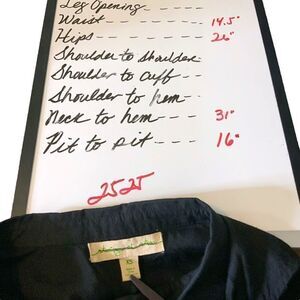 Leg Opening
Waist --- 14.5"
Hips ---- 26"
Shoulder to shoulder
Shoulder to cuff ---
Shoulder to hem ---
Neck to hem --- 31"
Pit to pit --- 16"
2525
XS